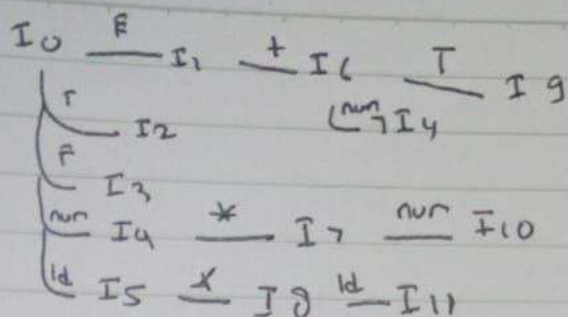 I0 E I1 + I6 T I9
T I2 num I4
F I3
num I4 * I7 num I10
Id I5 * I8 Id I11